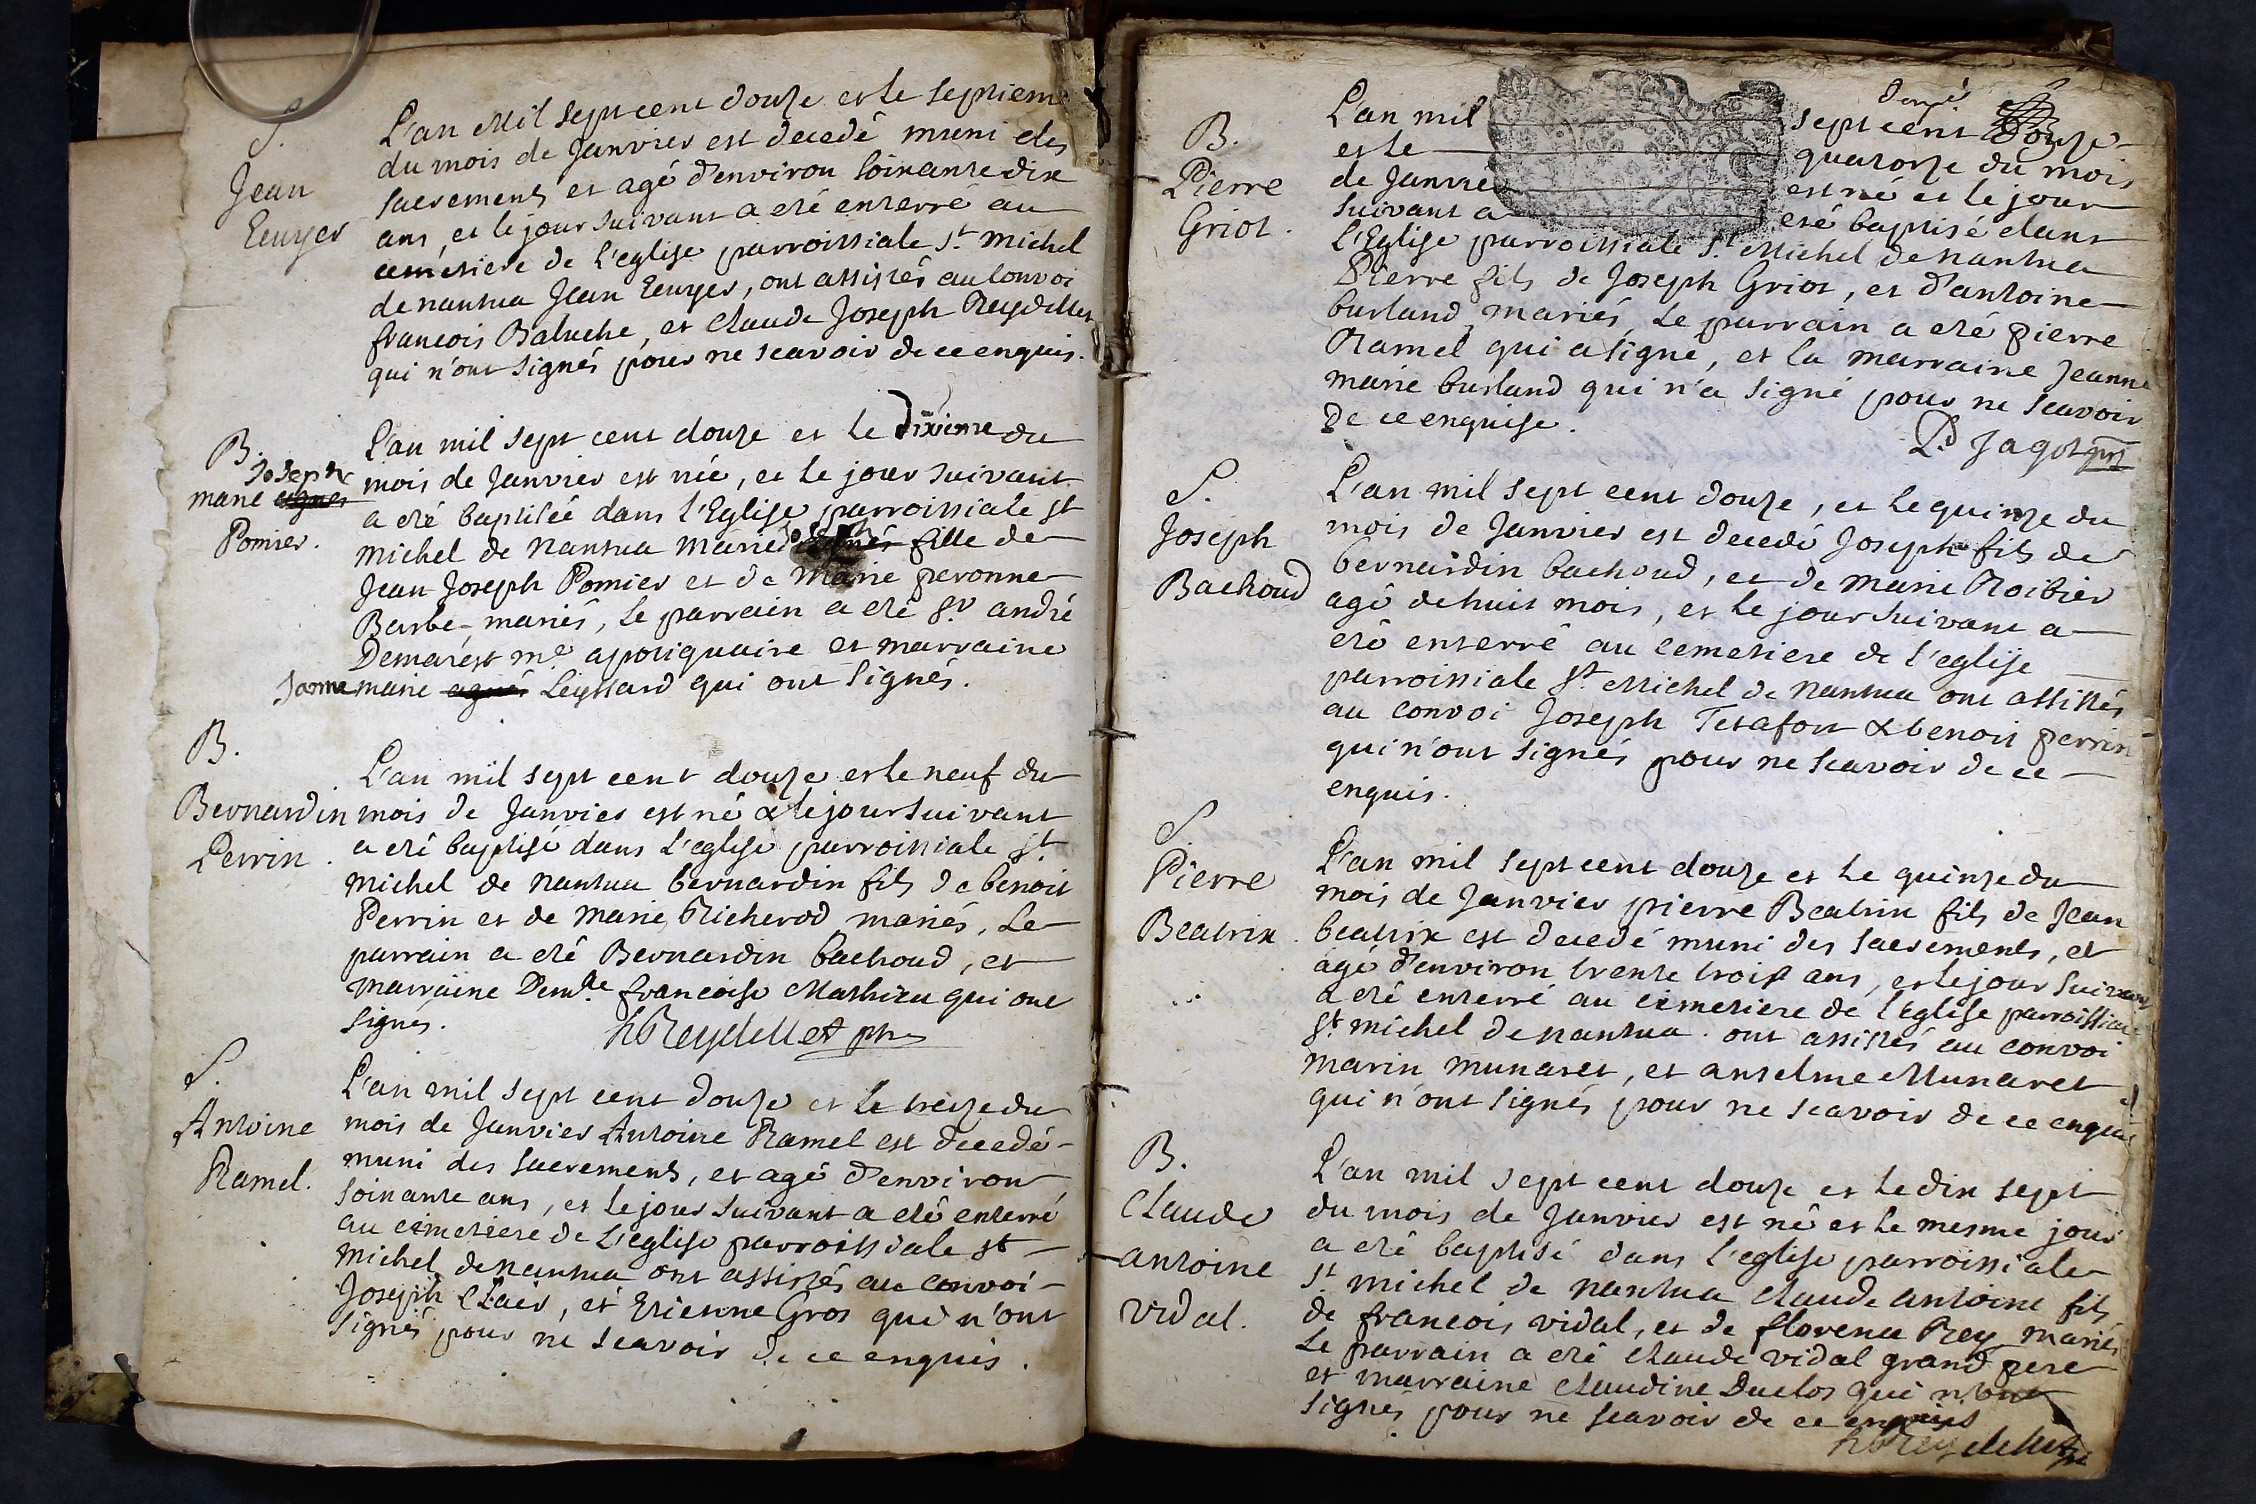 S.
Jean
Ecuyer
L'an Mil sept cent douze et le septieme
du mois de Janvier est decedé muni des
sacrements et agé d'environ soixante dix
ans, et le jour suivant a eté enterré au
cemetiere de l'eglise parroissiale st. michel
de nantua Jean Ecuyer, ont assistés au convoi
francois Baluche, et Claude Joseph Reydellet
qui n'ont signés pour ne scavoir de ce enquis.
B.
Joseph
marie agnes
Pomier.
L'an mil sept cent douze et le Dixieme du
mois de Janvier est née, et le jour suivant
a eté baptisée dans l'Eglise parroissiale st
michel de Nantua Marie fille de
Jean Joseph Pomier et de Marie peronne
Barbe mariés, le parrain a eté Sr. andré
Demarest me. apotiquaire et marraine
Janne marie agnes Leyssard qui ont signés.
B.
Bernardin
Perrin.
L'an mil sept cent douze et le neuf du
mois de Janvier est né & le jour suivant
a eté baptisé dans l'eglise parroissiale st.
michel de nantua bernardin fils de benoit
Perrin et de Marie Richerod mariés, Le
parrain a eté Bernardin bachoud, et
marraine Demlle francoise Mathieu qui ont
signés.
Reydellet ptre
S.
Antoine
Ramel.
L'an mil sept cent douze et le treize du
mois de Janvier Antoine Ramel est decedé
muni des sacrements, et agé d'environ
soixante ans, et le jour suivant a eté enterré
au cemetiere de l'eglise parroissiale st
michel de nantua ont assistés au convoi
Joseph Clair, et Etienne Gros qui n'ont
signés pour ne scavoir de ce enquis.
B.
Pierre
Griot.
L'an mil sept cent douze
et le quatorze du mois
de Janvier est né et le jour
suivant a eté baptisé dans
l'Eglise parroissiale St. Michel de nantua
Pierre fils de Joseph Griot, et d'antoine
burland mariés, Le parrain a eté pierre
Ramel qui a signé, et la marraine Jeanne
marie burland qui n'a signé pour ne scavoir
de ce enquise.
Jagot
S.
Joseph
Bachoud
L'an mil sept cent douze, et le quinze du
mois de Janvier est decedé Joseph fils de
bernardin bachoud, et de Marie Roibier
agé de huit mois, et le jour suivant a
eté enterré au cemetiere de l'eglise
parroissiale St. Michel de nantua ont assistés
au convoi Joseph Tetafort & benoit perrin
qui n'ont signés pour ne scavoir de ce
enquis.
S.
Pierre
Beatrix.
L'an mil sept cent douze et le quinze du
mois de Janvier pierre Beatrix fils de Jean
beatrix est decedé muni des sacrements, et
agé d'environ trente trois ans, et le jour suivant
a eté enterré au cemetiere de l'Eglise parroissiale
St. michel de nantua. ont assistés au convoi
marin munaret, et anselme Munaret
qui n'ont signés pour ne scavoir de ce enquis
B.
Claude
antoine
vidal.
L'an mil sept cent douze et le dix sept
du mois de Janvier est né et le mesme jour
a eté baptisé dans l'eglise parroissiale
St. michel de nantua Claude antoine fils
de francois vidal, et de florence Rey mariés
Le parrain a eté Claude vidal grand pere
et marraine Claudine Duclos qui n'ont
signés pour ne scavoir de ce enquis
Reydellet